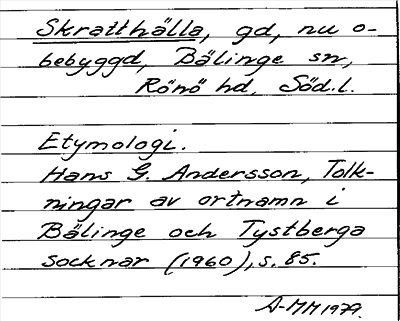 Skratthälla, gd, nu o-
bebyggd, Bälinge sn,
Rönö hd, Söd.l.
Etymologi.
Hans G. Andersson, Tolk-
ningar av ortnamn i
Bälinge och Tystberga
socknar (1960), s. 85.
A-MM 1979.